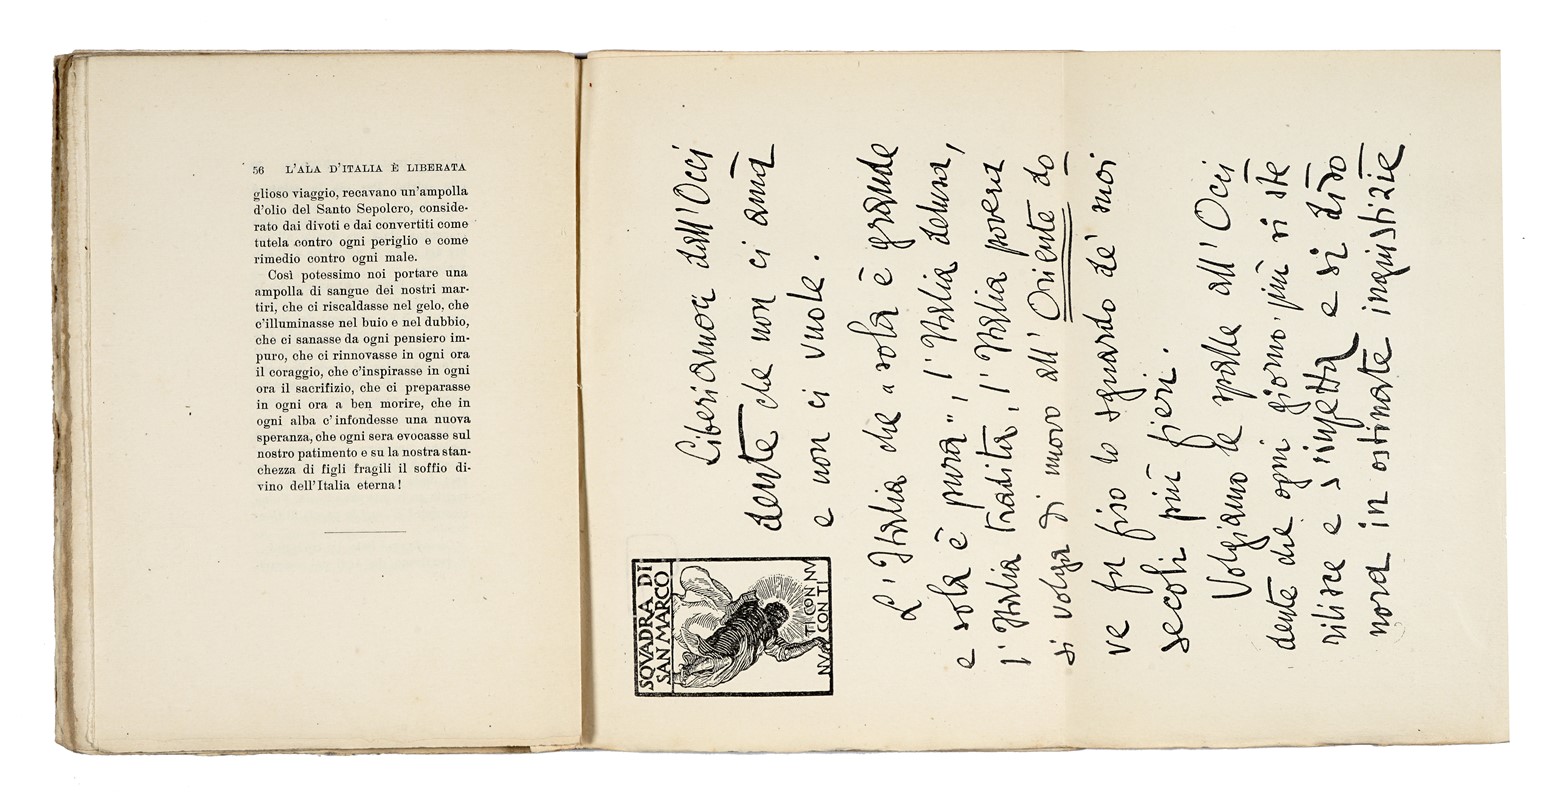 56 L'ALA D'ITALIA È LIBERATA
glioso viaggio, recavano un'ampolla
d'olio del Santo Sepolcro, conside-
rato dai divoti e dai convertiti come
tutela contro ogni periglio e come
rimedio contro ogni male.
Così potessimo noi portare una
ampolla di sangue dei nostri mar-
tiri, che ci riscaldasse nel gelo, che
c'illuminasse nel buio e nel dubbio,
che ci sanasse da ogni pensiero im-
puro, che ci rinnovasse in ogni ora
il coraggio, che c'inspirasse in ogni
ora il sacrifizio, che ci preparasse
in ogni ora a ben morire, che in
ogni alba c'infondesse una nuova
speranza, che ogni sera evocasse sul
nostro patimento e su la nostra stan-
chezza di figli fragili il soffio di-
vino dell'Italia eterna!
SQVADRA DI
SAN MARCO
TI CON NV
NV CON TI
Liberiamoci dall'Occi
dente che non ci ama
e non ci vuole.
L'Italia che "sola è grande
e sola è pura", l'Italia delusa,
l'Italia tradita, l'Italia povera
si volga di nuovo all'Oriente do
ve fu fiso lo sguardo de' suoi
secoli più fieri.
Volgiamo le spalle all'Occi
dente che ogni giorno più si ste
rilisce e s'infetta e si diso
nora in ostinate ingiustizie